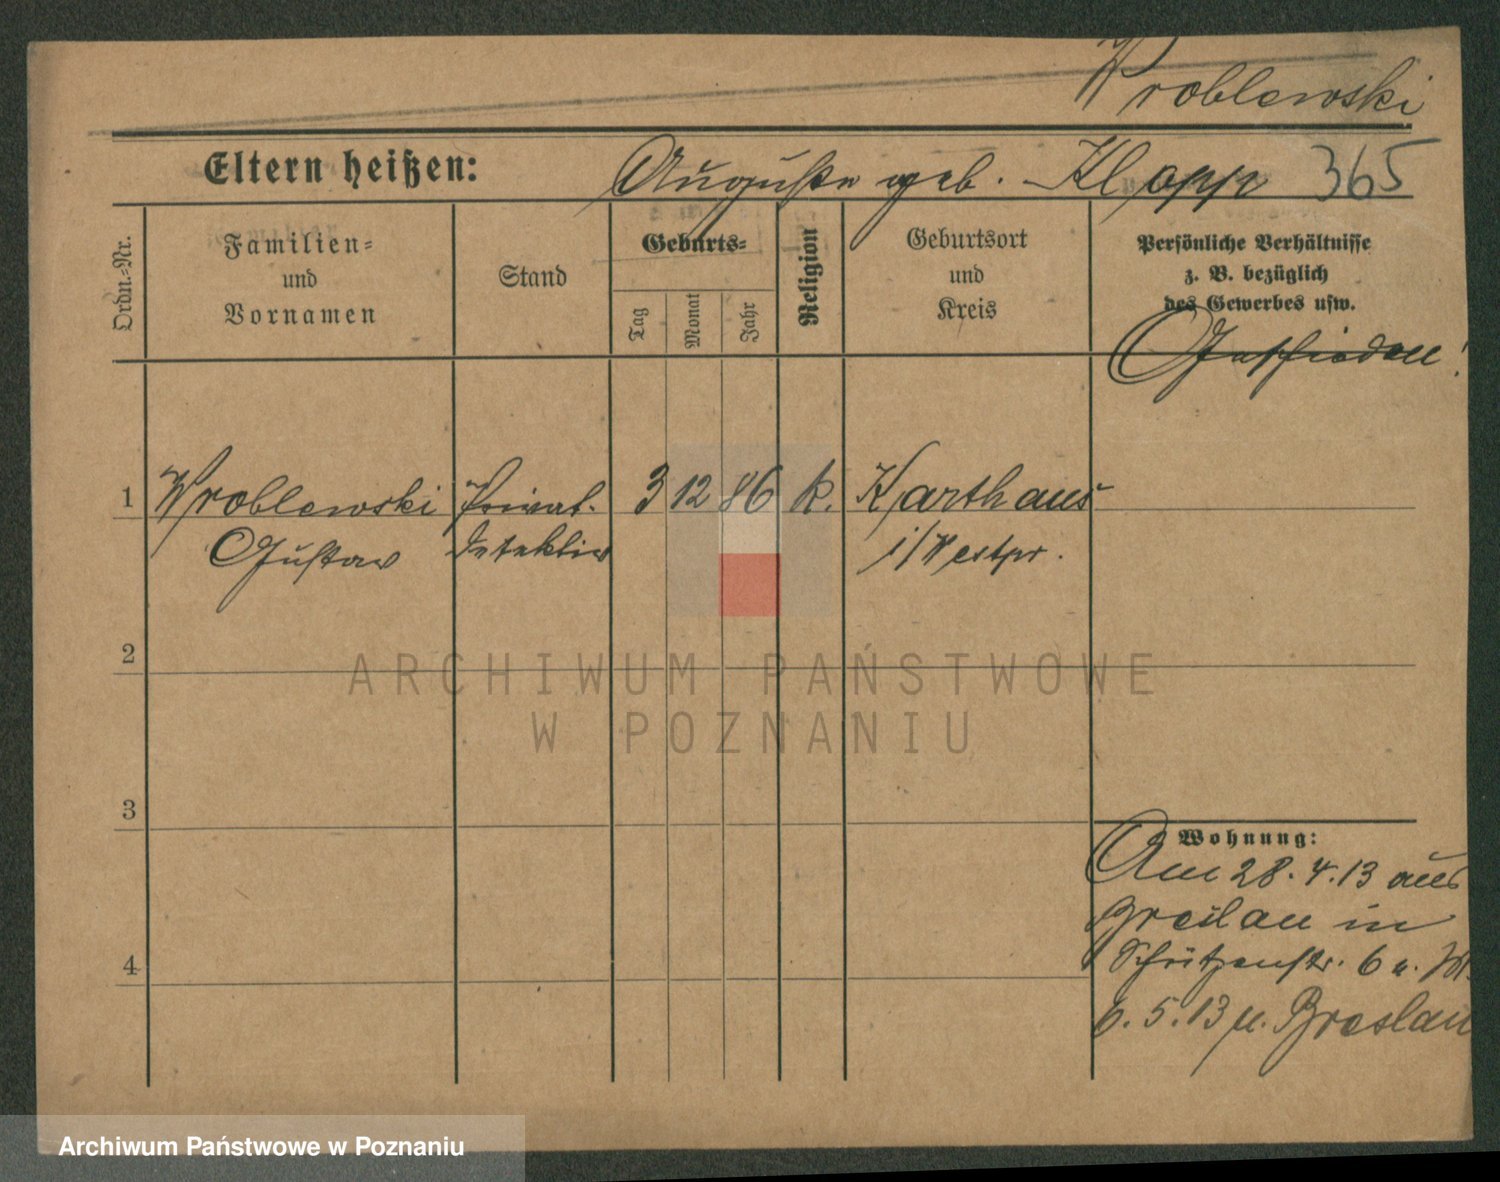 Wroblewski
Eltern heißen: Auguste geb. Klopp 365
Ordn.-Nr.
Familien-
und
Vornamen
Stand
Geburts-
Tag
Monat
Jahr
Religion
Geburtsort
und
Kreis
Persönliche Verhältnisse
z. B. bezüglich
des Gewerbes usw.
Geschieden!
1 Wroblewski Privat- 3 12 86 k. Karthaus
Gustav detektiv i/Westpr.
2
3
4
Wohnung:
Am 28.4.13 aus
Breslau in
Schützenstr. 6 a.
6.5.13 n. Breslau
ARCHIWUM PAŃSTWOWE
W POZNANIU
Archiwum Państwowe w Poznaniu